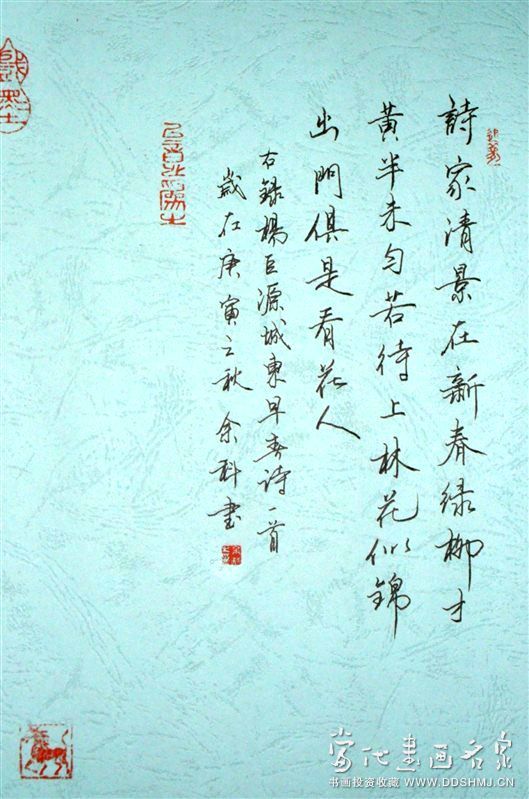 詩家清景在新春绿柳才
黄半未匀若待上林花似锦
出門俱是看花人
右録楊巨源城東早春诗一首
歲在庚寅之秋余科書
當代書画名家
书画投资收藏 WWW.DDSHMJ.CN